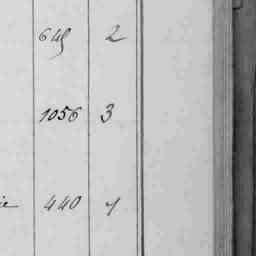 649 2
1056 3
440